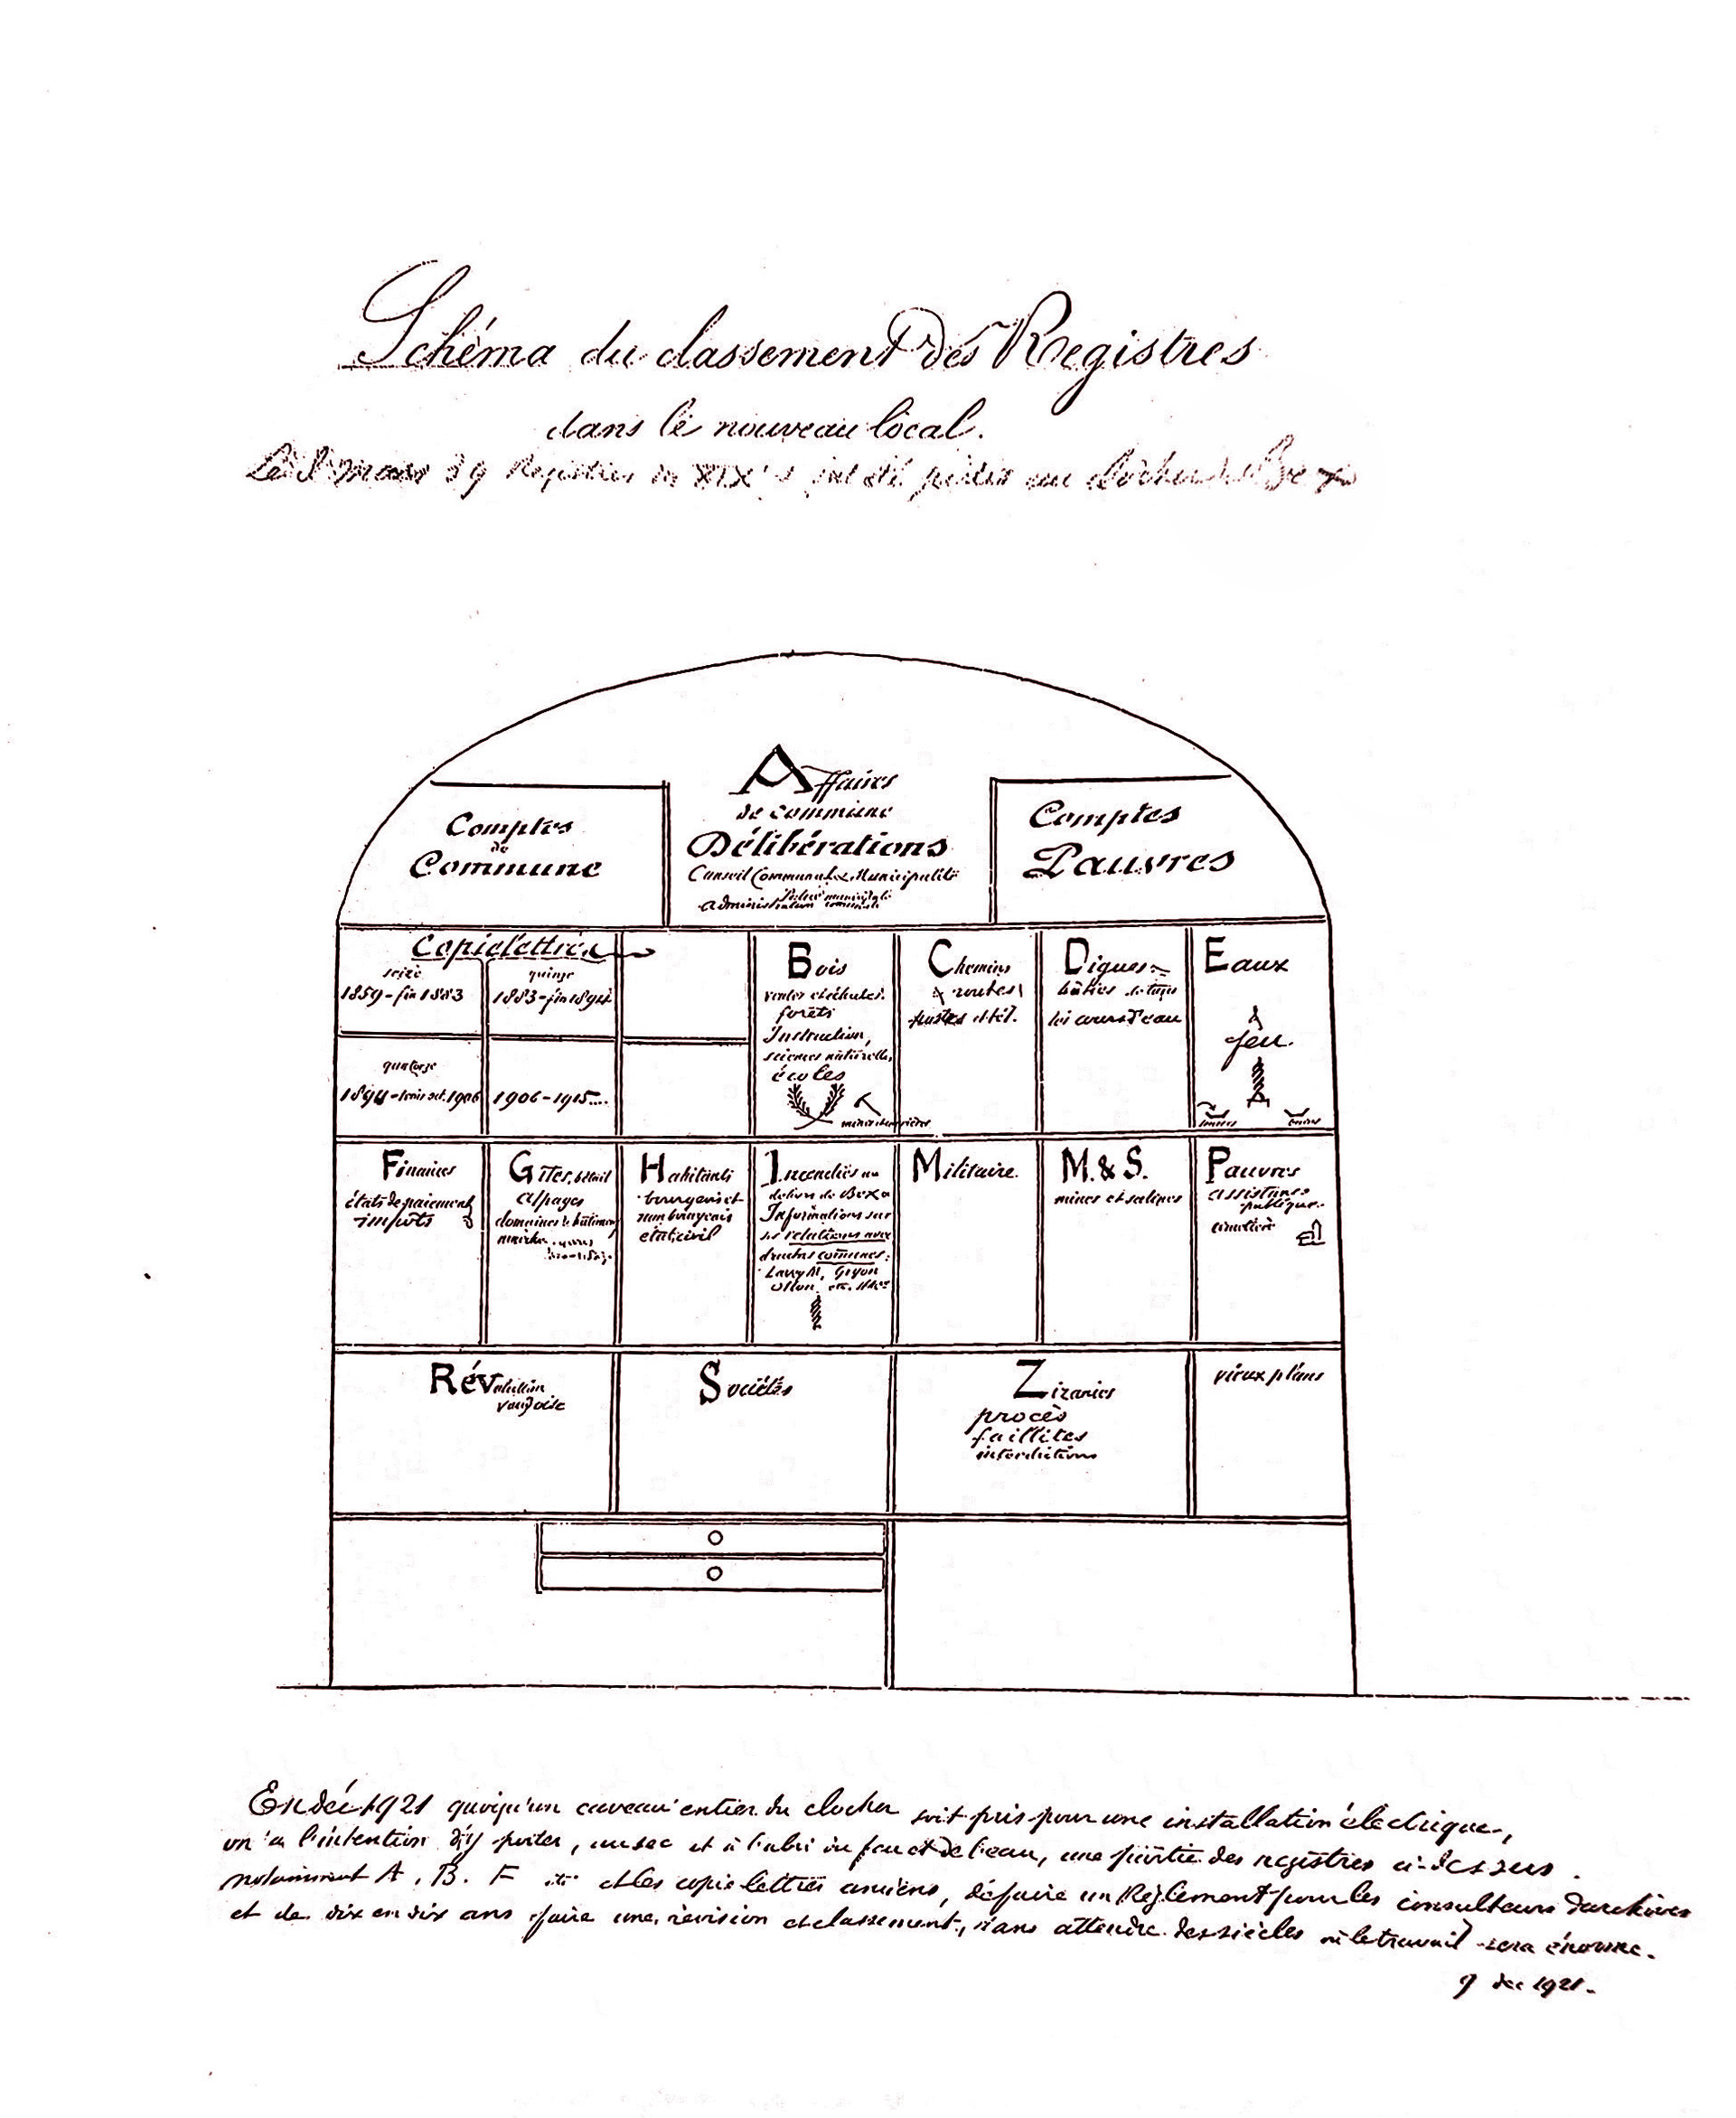 Schéma du classement des Registres
dans le nouveau local.
Registres XIXe
Affaires
de commune
Délibérations
Conseil Communal & Municipalité
Administration
Comptes
de
Commune
Comptes
Pauvres
Copie lettres
seize
1859 - fin 1883
quinze
1883 - fin 1894
quatorze
1894 - 1906
1906 - 1915....
Bois
forêts
Instruction,
sciences naturelles,
écoles
Chemins
& routes
Digues
les cours d'eau
Eaux
à
feu.
Finances
états de paiement
impôts
Gîtes, bétail
alpages
domaines & bâtiments
Habitants
bourgeois et
non bourgeois
état civil
Incendies au
dehors de Bex
Informations sur
les relations avec
d'autres communes:
Lavey M., Gryon
Ollon etc.
Militaire.
M. & S.
mines et salines
Pauvres
assistance
publique.
cimetière
Révolution
vaudoise
Sociétés
Zizanies
procès
faillites
interdictions
vieux plans
En déc 1921 quoiqu'un caveau entier du clocher soit pris pour une installation électrique,
on a l'intention d'y porter, au sec et à l'abri du feu et de l'eau, une partie des registres ci-dessus.
notamment A. B. F et les copie lettres anciens, de faire un Règlement pour les consulteurs d'archives
et de dix en dix ans faire une révision et classement, sans attendre des siècles où le travail sera énorme.
9 dec 1921.